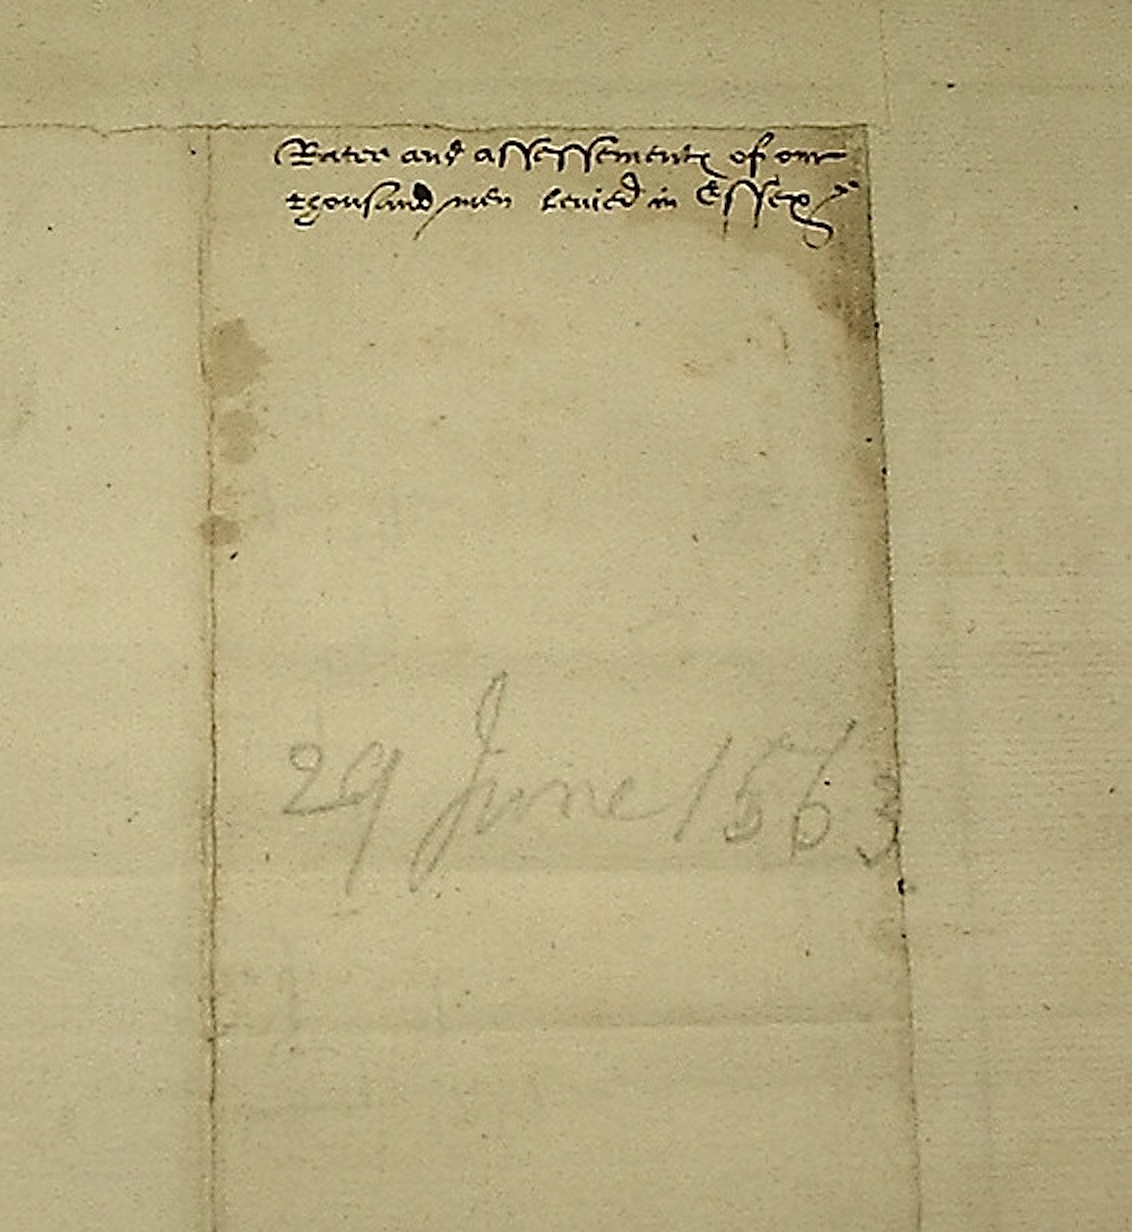 Rates and assessements of one
thousand men levied in Essex
29 June 1563